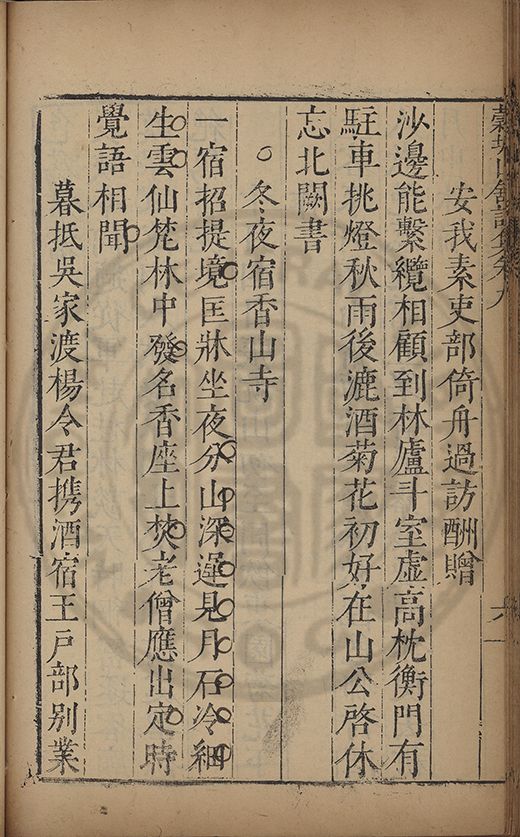 穀城山館詩集卷九
安我素吏部倚舟過訪酬贈
沙邊能繫纜相顧到林廬斗室虛高枕衡門有
駐車挑燈秋雨後漉酒菊花初好在山公啓休
忘北闕書
冬夜宿香山寺
一宿招提境匡牀坐夜分山深遲見月石冷細
生雲仙梵林中發名香座上焚老僧應出定時
覺語相聞
暮抵吳家渡楊令君携酒宿王戶部別業